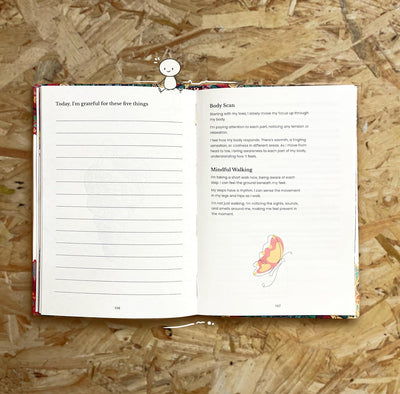 Today, I'm grateful for these five things
Body Scan
Starting with my toes, I slowly move my focus up through
my body.
I'm paying attention to each part, noticing any tension or
relaxation.
I feel how my body responds. There's warmth, a tingling
sensation, or coolness in different areas. As I move from
head to toe, I bring awareness to each part of my body,
understanding how it feels.
Mindful Walking
I'm taking a short walk now, being aware of each
step. I can feel the ground beneath my feet.
My steps have a rhythm. I can sense the movement
in my legs and hips as I walk.
I'm not just walking; I'm noticing the sights, sounds,
and smells around me, making me feel present in
the moment.